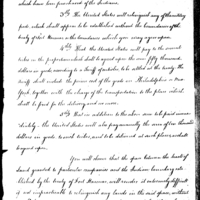 which have been purchased of the Indians.
3rd The United States will relinquish any of the military
posts which shall appear to be established without the boundaries of the
treaty of Fort Harmar or the boundaries which you may agree upon
4th That the United States will pay to the several
tribes in the proportions which shall be agreed upon the sum fifty thousand
dollars in goods according to a tariff of articles to be settled at the treaty, the
tariff shall include the prices and of the goods in Philadelphia or New
York, together with the charge of the transportation to the place which
shall be fixed for the delivery and no more.
5th That in addition to the above sum to be paid imme-
diately, the United States will also pay annually the sum of ten thousand
dollars in goods to said tribes, and to be delivered at such places as shall
be agreed upon.
You will observe that the space between the tract of
land granted to particular companies and the Indian boundary esta-
blished by the treaty of Fort Harmar, will render it extremely difficult
if not impracticable to relinquish any lands in the said space, without